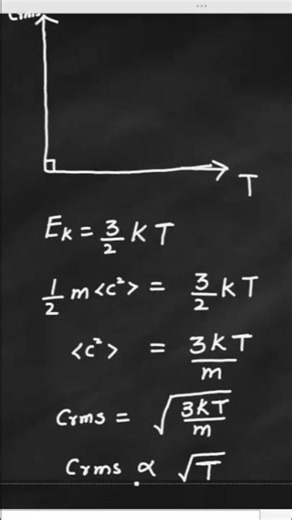 Crms
T
Eₖ = 3/2 k T
1/2 m <c²> = 3/2 k T
<c²> = 3kT/m
Crms = √(3kT/m)
Crms ∝ √T